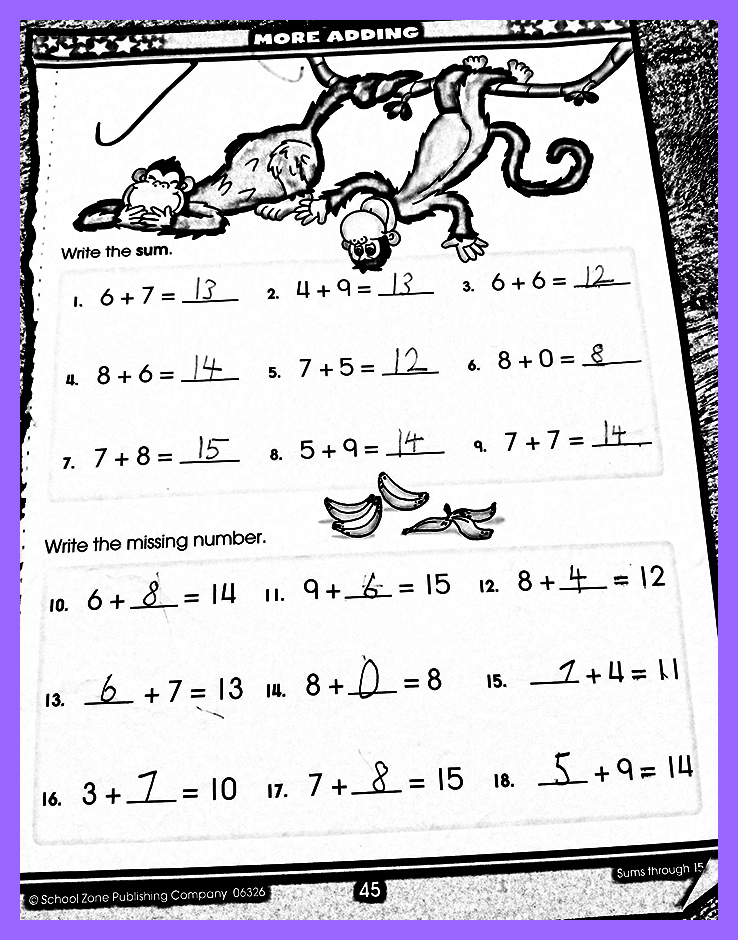 MORE ADDING
Write the sum.
1. 6 + 7 = 13 2. 4 + 9 = 13 3. 6 + 6 = 12
4. 8 + 6 = 14 5. 7 + 5 = 12 6. 8 + 0 = 8
7. 7 + 8 = 15 8. 5 + 9 = 14 9. 7 + 7 = 14
Write the missing number.
10. 6 + 8 = 14 11. 9 + 6 = 15 12. 8 + 4 = 12
13. 6 + 7 = 13 14. 8 + 0 = 8 15. 7 + 4 = 11
16. 3 + 7 = 10 17. 7 + 8 = 15 18. 5 + 9 = 14
Sums through 15
© School Zone Publishing Company 06326 45